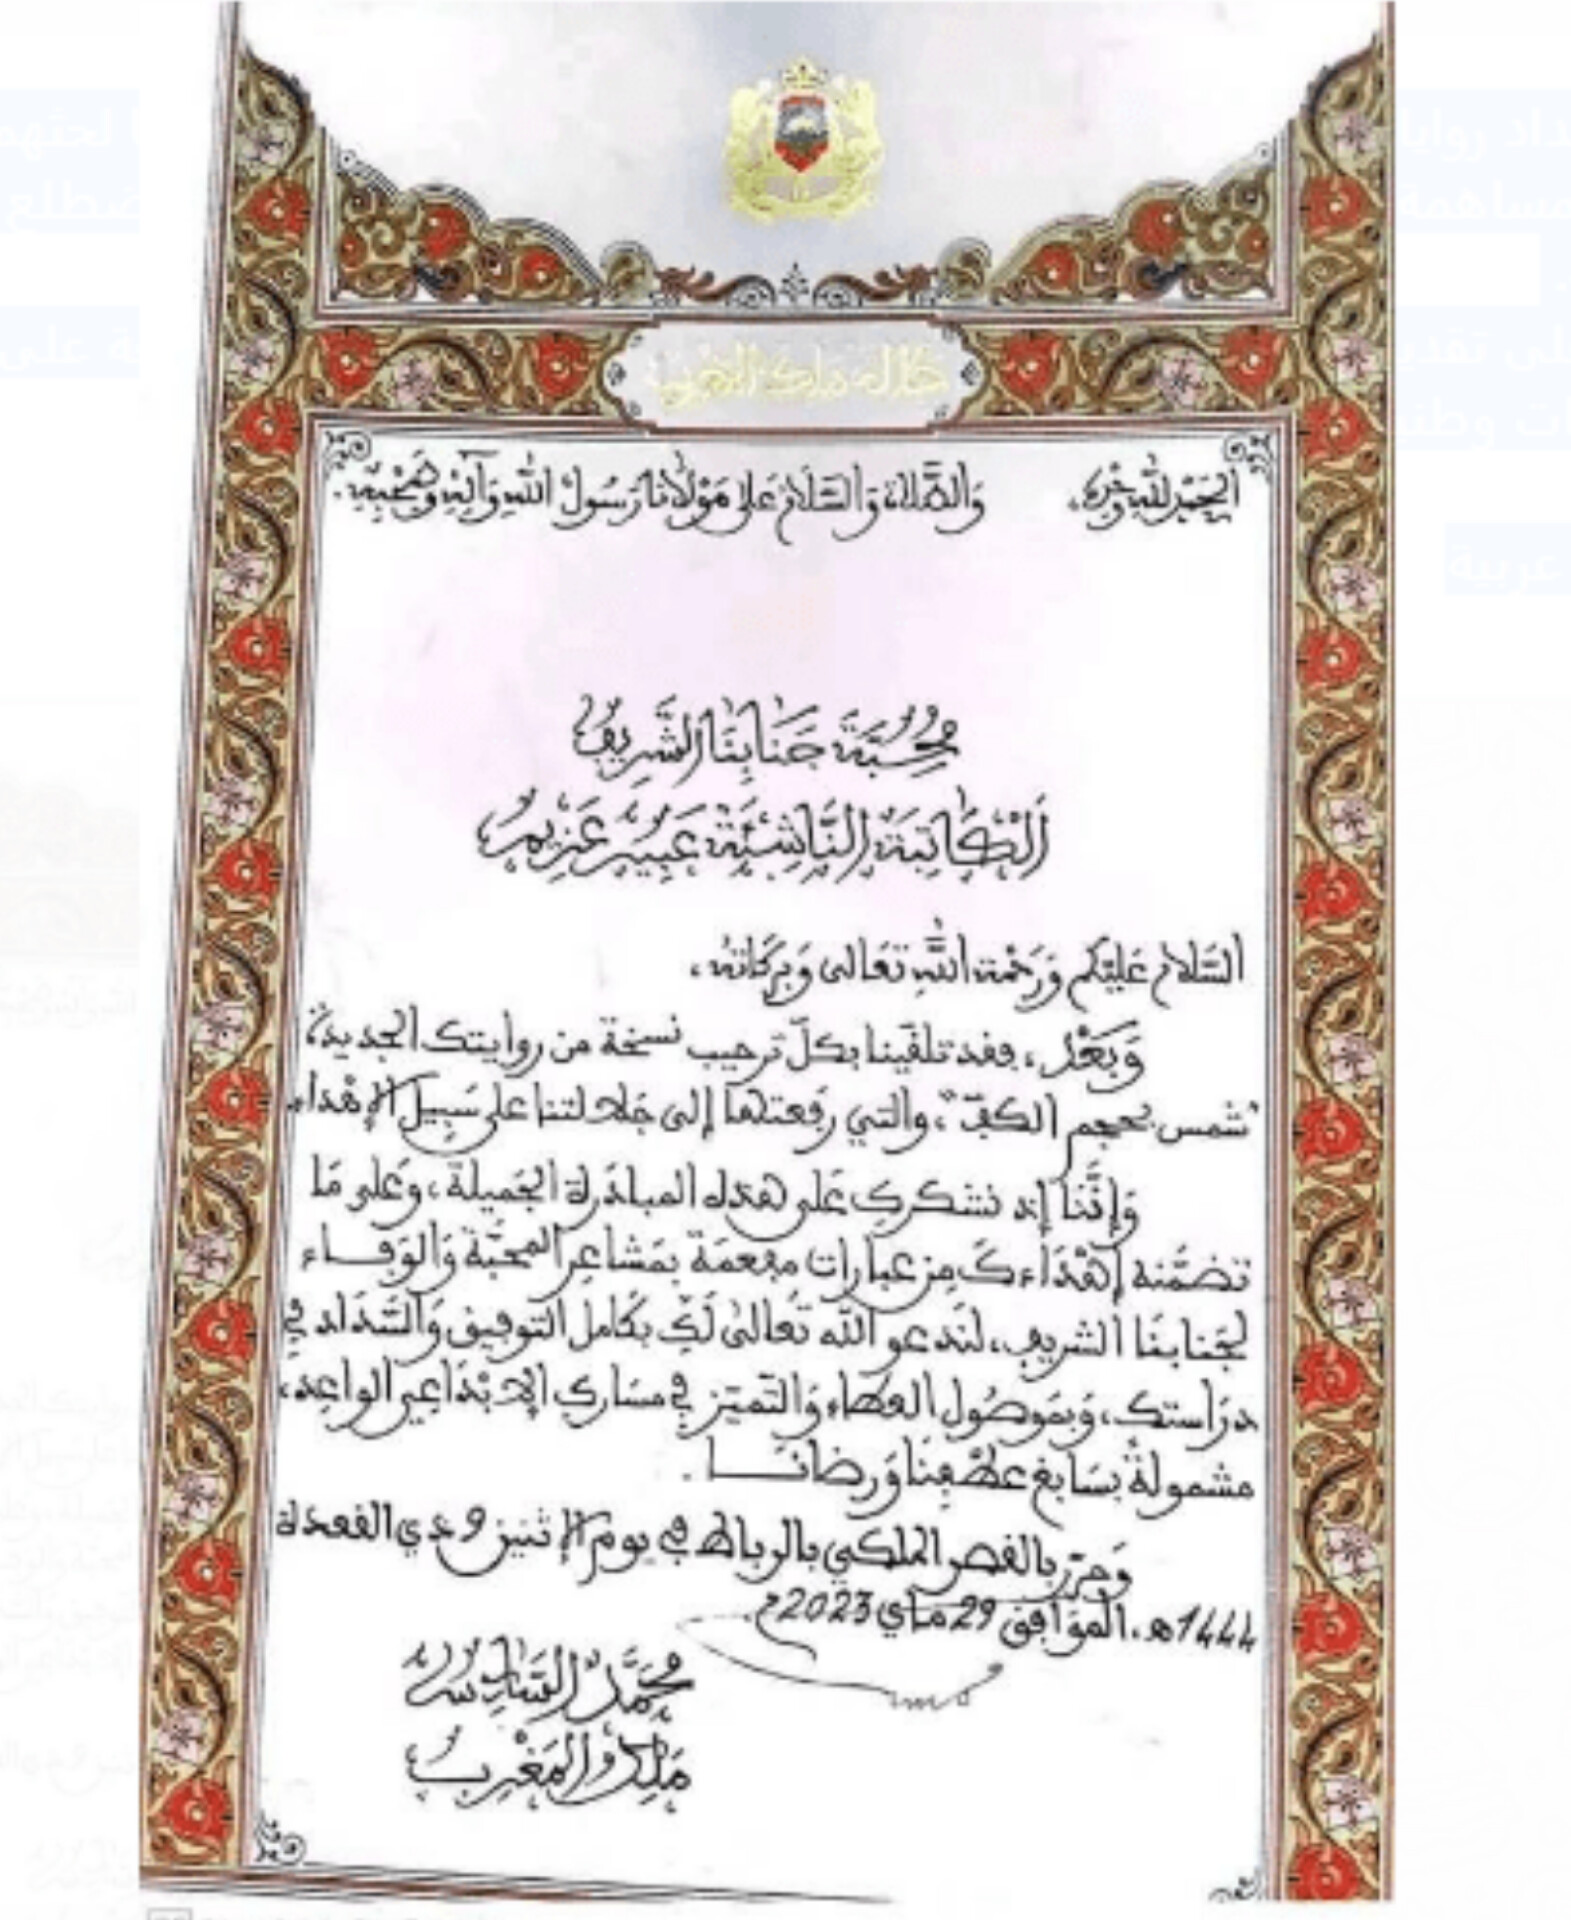 جلالة ملك المغرب
الحمد لله وحده، والصلاة والسلام على مولانا رسول الله وآله وصحبه.
مُحِبَّة جَنَابِنَا الشَّرِيف
الْكَاتِبَة النَّاشِئَة عَبِير عَزِيم
السَّلام عَلَيْكم وَرَحْمة الله تَعَالى وَبَركَاته،
وَبَعْد، فقد تلقينا بكلّ ترحيب نسخة من روايتك الجديدة،
"شمس بحجم الكف"، والتي رفعتها إلى جَلالتنا على سَبِيل الإهْداء.
وَإنَّنا إذ نشكرك عَلى هذه المبادَرة الجَميلة، وعَلى مَا
تضمَّنه إهْدَاءك مِن عبارات مفعمَة بمَشاعر المحَبَّة وَالوَفـاء
لجَنابنَا الشريف، لنَدعو الله تَعالى لَكِ بكَامل التوفيق وَالسَّدَاد في
دِرَاستك، وَبمَوصُول العَطاء وَالتّميّز في مسَارك الإبْدَاعي الواعِد،
مشمولةً بسَابغ عطْفِنا وَرضانَــا.
وَحرّر بالقصر الملكي بالرباط في يوم الإثنين 9 ذي القعدة
1444هـ، الموَافِق 29 مَاي 2023م.
مُحَمَّد السَّادِس
مَلِك المَغْرِب